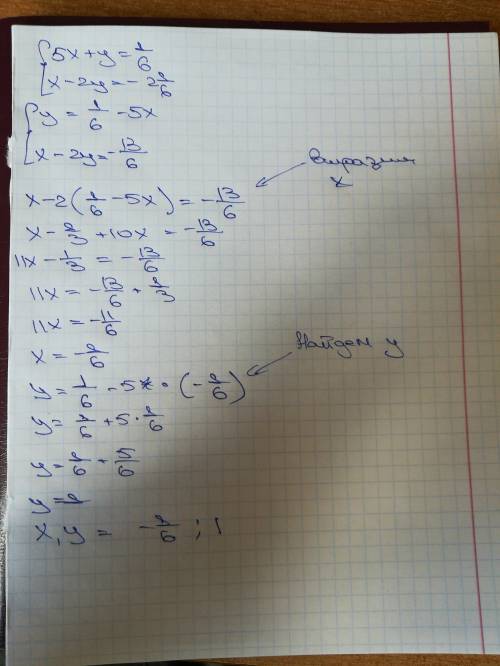 {5x+y=1/6
{x-2y=-2 1/6
{y=1/6-5x
{x-2y=-13/6
выразим
x
x-2(1/6-5x)=-13/6
x-1/3+10x=-13/6
11x-1/3=-13/6
11x=-13/6+1/3
11x=-11/6
x=-1/6
Найдем y
y=1/6-5·(-1/6)
y=1/6+5·1/6
y=1/6+5/6
y=1
x,y=-1/6;1